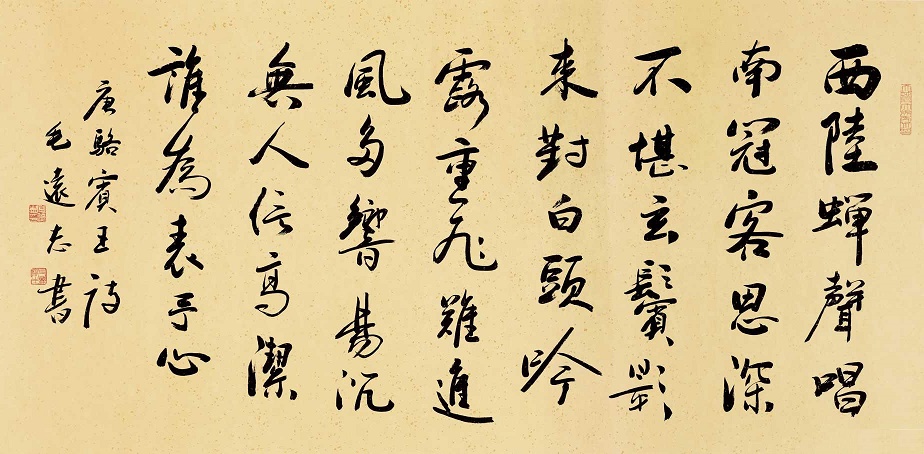 西陸蟬聲唱
南冠客思深
不堪玄鬢影
來對白頭吟
露重飛難進
風多響易沉
無人信高潔
誰為表予心
唐駱賓王詩
毛遠志書